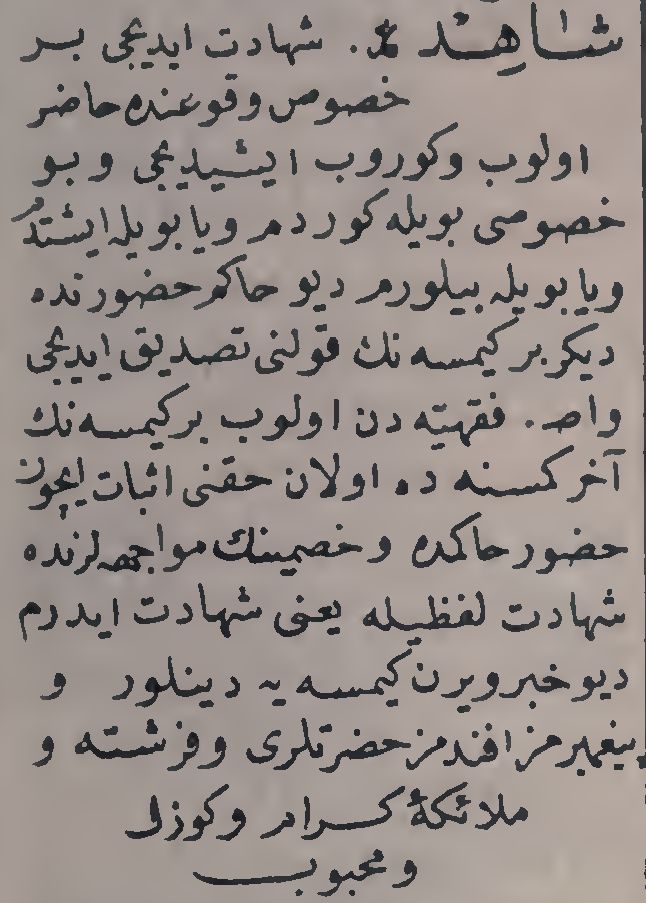 شاهد ع. شهادت ایدیجی بر
خصوص وقوعنده حاضر
اولوب وكوروب ایشیدیجی و بو
خصوصی بویله كوردم ویا بویله ایشتدم
ویا بویله بیلورم دیو حاكم حضورنده
دیكر بر كیمسه نك قولنی تصدیق ایدیجی
واص. فقهیّه دن اولوب بر كیمسه نك
آخر كسنه ده اولان حقنی اثبات ایچون
حضور حاكمده و خصمینك مواجهه لرنده
شهادت لفظیله یعنی شهادت ایدرم
دیو خبر ویرن كیمسه یه دینلور و
پیغمبرمز افندمز حضرتلری و فرشته و
ملائكهٔ كرام وكوزل
و محبوب